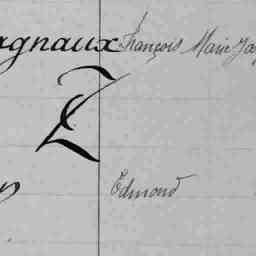 agnaux François Marie
Z
Edmond